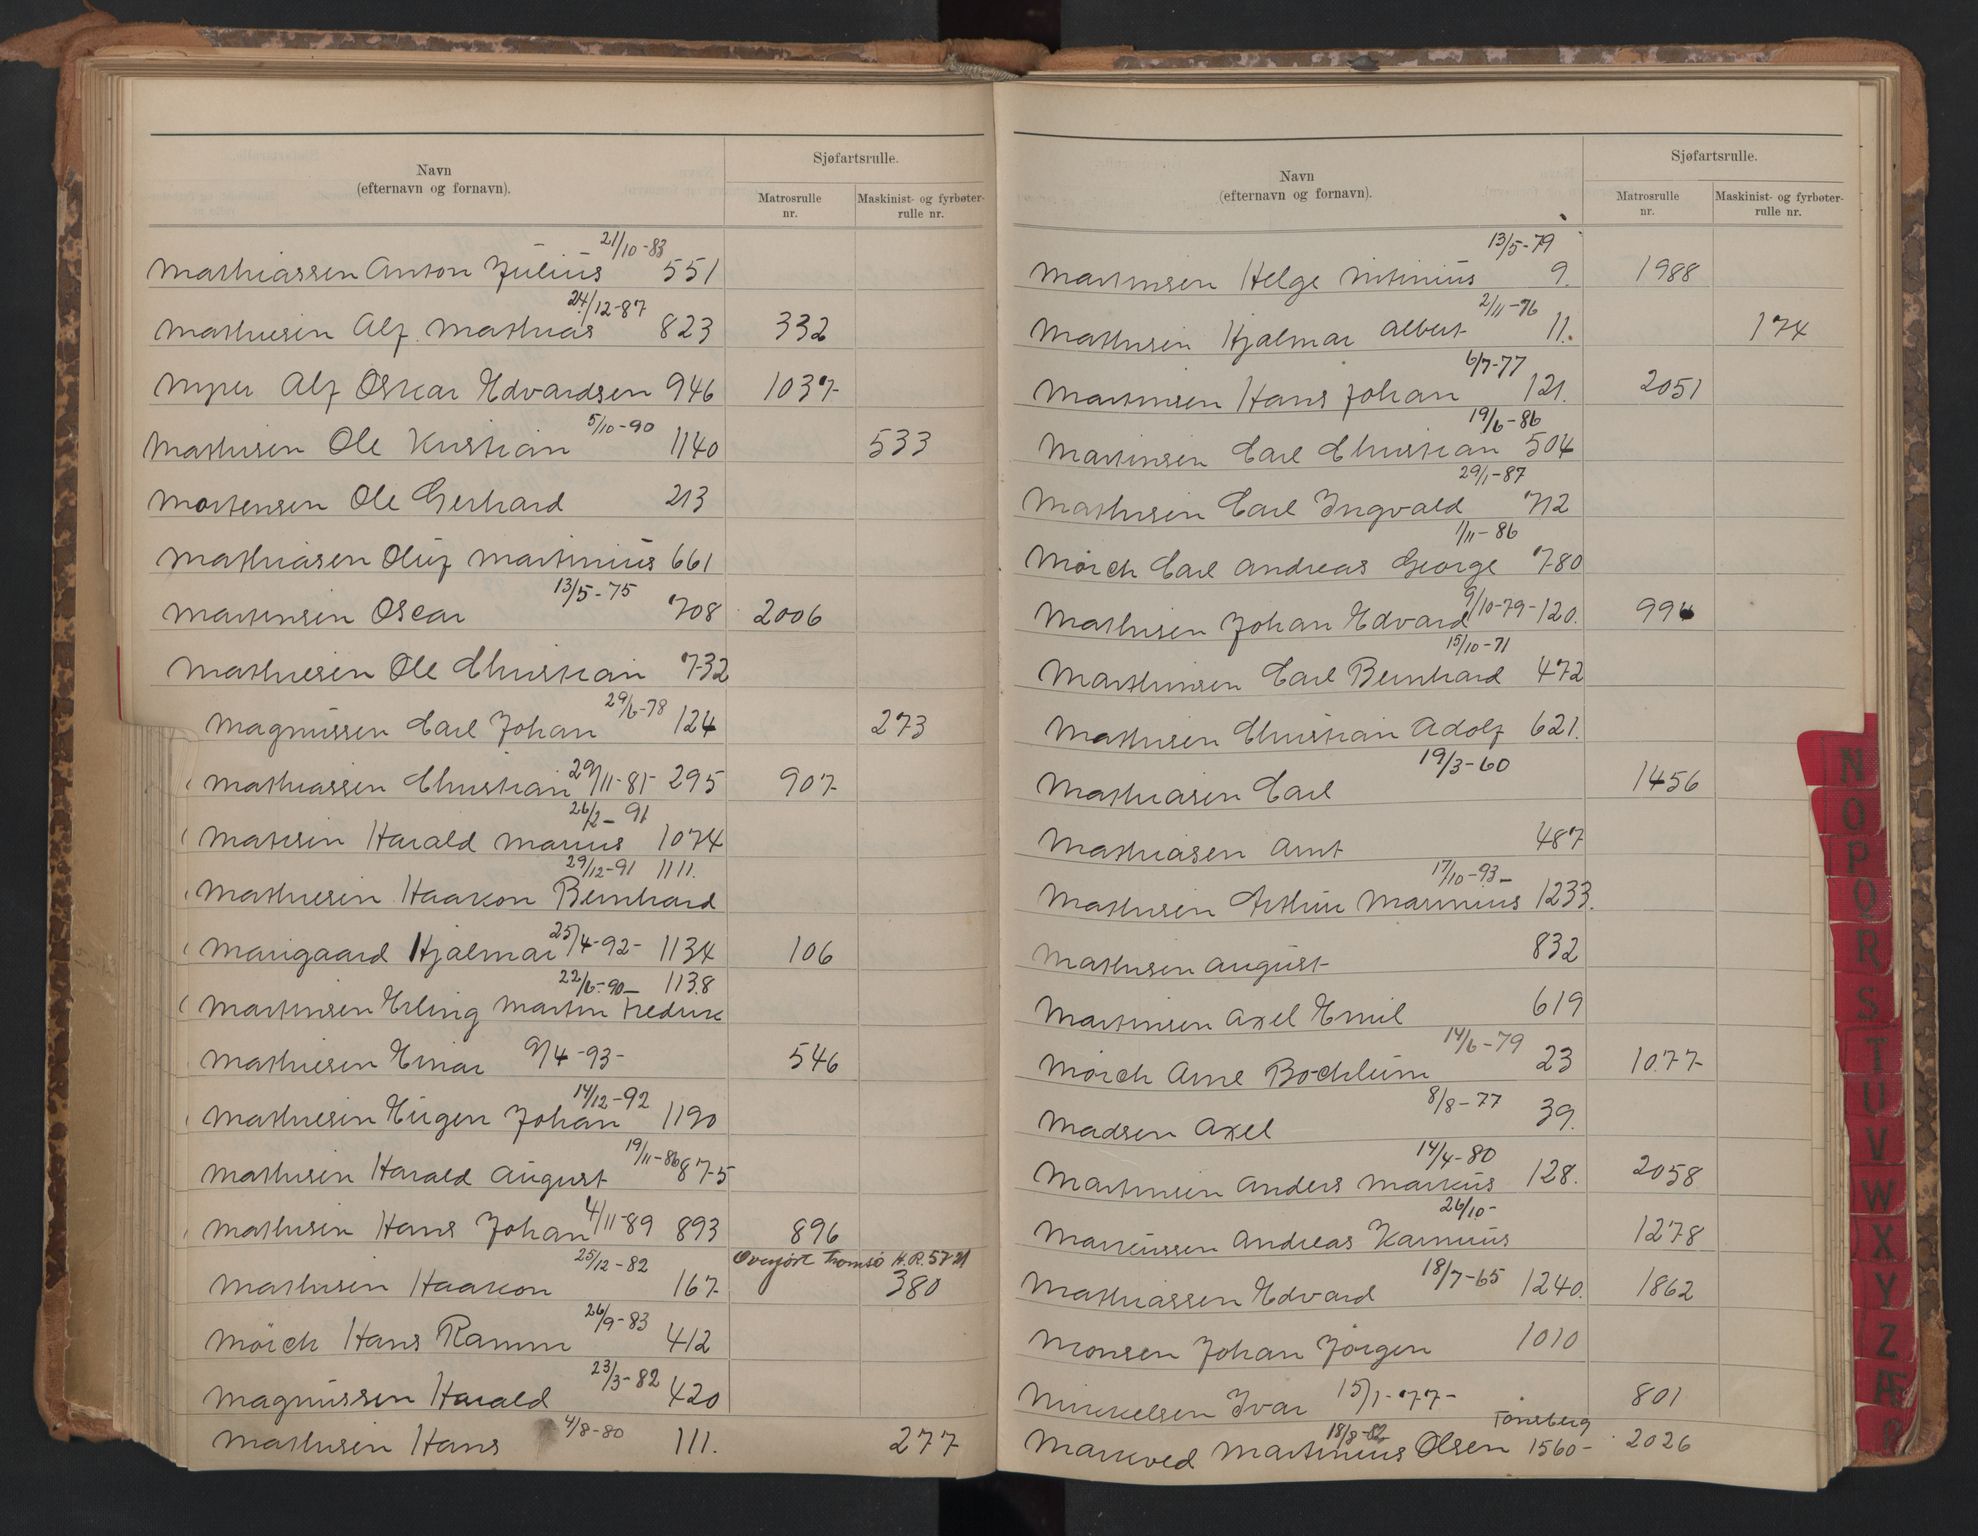 Navn
(efternavn og fornavn).
Sjøfartsrulle.
Matrosrulle nr.
Maskinist- og fyrbøter-rulle nr.
21/10-83
Mathiassen Anton Julius 551
24/12-87
Mathiesen Alf Mathias 823 332
Myrer Alf Oskar Edvardsen 946 1037
5/10-90
Mathisen Ole Kristian 1140 533
Mortensen Ole Gerhard 213
Mathiasen Oluf Martinius 661
13/5-75
Martinsen Oscar 708 2006
Mathiesen Ole Christian 732
29/6-78
Magnussen Carl Johan 124 273
Mathiassen Christian 29/11-81 295 907
26/2-91
Madsen Harald Marius 1074
29/12-91 1111.
Mathiesen Haakon Bernhard
Maurgaard Hjalmar 25/4-92- 1134 106
22/6-90- 1138
Martinsen Erling Martin Fredrik
Mathiesen Einar 9/4-93- 546
14/12-92
Mathiesen Eugen Johan 1190
19/11-86
Mathisen Harald August 875
Mathisen Hans Johan 4/11-89 893 896
25/12-82 Overført Tromsø H.R. 57
Mathisen Haakon 167 380
26/9-83
Mørch Hans Ramm 412
23/3-82
Magnussen Harald 420
4/8-80
Mathisen Hans 111. 277
Navn
(efternavn og fornavn).
Sjøfartsrulle.
Matrosrulle nr.
Maskinist- og fyrbøter-rulle nr.
13/5-79
Martinsen Helge 9. 1988
2/11-76
Mathisen Hjalmar Albert 11. 174
6/7-77
Martinsen Hans Johan 121. 2051
19/6-86
Martinsen Carl Christian 504
29/1-87
Mathisen Carl Ingvald 712
1/11-86
Mørch Carl Andreas George 780
Mathisen Johan Edvard 9/10-79- 120. 994
15/10-71
Marthinsen Carl Bernhard 472
Mathisen Christian Adolf 621.
19/3-60
Mathiasen Carl 1456
Mathiasen Arnt 487
17/10-93-
Mathisen Arthur Marinius 1233.
Mathisen August 832
Martinsen Axel Emil 619
14/6-79
Mørch Arne Bochlum 23 1077
8/8-77
Madsen Axel 39.
14/4-80
Martinsen Anders Markus 128. 2058
26/10-
Markussen Andreas Karinius 1278
18/7-65
Mathiassen Edvard 1240. 1862
Monsen Johan Jørgen 1010
Mikkelsen Ivar 15/1-77- 801
18/8-82 Tønsberg
Markved Martinius Olsen 1560- 2026
N
O
P
Q
R
S
T
U
V
W
X
Y
Z
Æ